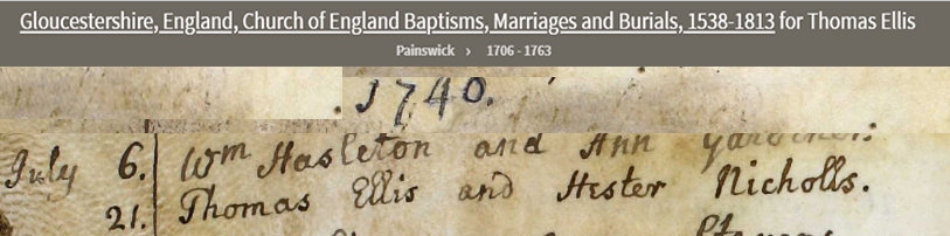 Gloucestershire, England, Church of England Baptisms, Marriages and Burials, 1538-1813 for Thomas Ellis
Painswick › 1706 - 1763
1740.
July 6. Wm Hasleton and Ann Gardiner:
21. Thomas Ellis and Hester Nicholls.